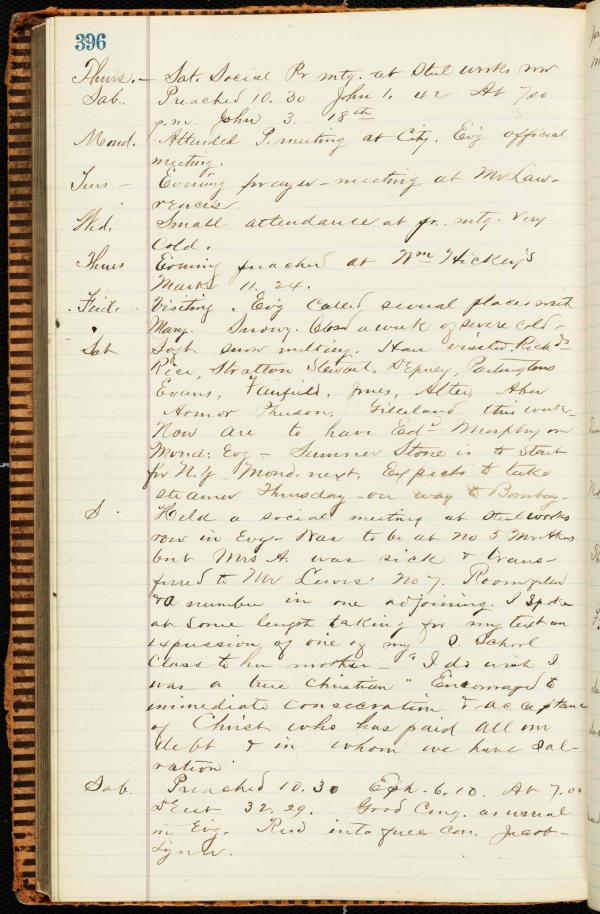 396
Thurs. — Sat. Social Pr mtg. at Steel works row
Sab. Preached 10.30 John 1. 42 At 7.00
p.m. John 3. 18th
Mond. Attended P. meeting at City. Ev'g official
meeting.
Tues — Evening prayer-meeting at Mr Law-
rences
Wed. Small attendance at pr. mtg. Very
Cold.
Thurs Evening preached at Wm Hickey's
Mark 11. 24.
Frid. Visiting. Ev'g Called several places with
Mary. Snowy. Closed a week of severe cold-
Sat Soft. snow melting. Have visited Richd
Rice, Stratton Stewart, Depuey, Partingtons
Evans, Fairfield, Jones, Alter, Aber
Armor Gilleland this week-
Now are to have Edd Murphy on
Mond. Evg — Sumner Stone is to start
for N.Y. Mond. next. Expects to take
steamer Thursday - on way to Bombay-
S. Held a social meeting at steelworks
row in Evg. Was to be at No 5 Mr
but Mrs A. was sick & trans-
ferred to Mr Lewis' No 7. Room filled
& a number in one adjoining. I spoke
at some length taking for my text an
expression of one of my S. School
Class to her mother — "I do wish I
was a true Christian" Encouraged to
immediate consecration & acceptance
of Christ who has paid all our
debt & in whom we have sal-
vation
Sab. Preached 10.30 Eph. 6. 10. At 7.00
Deut 32. 29. Good Cong. as usual
in Evg. Recd into full con. Jacob-